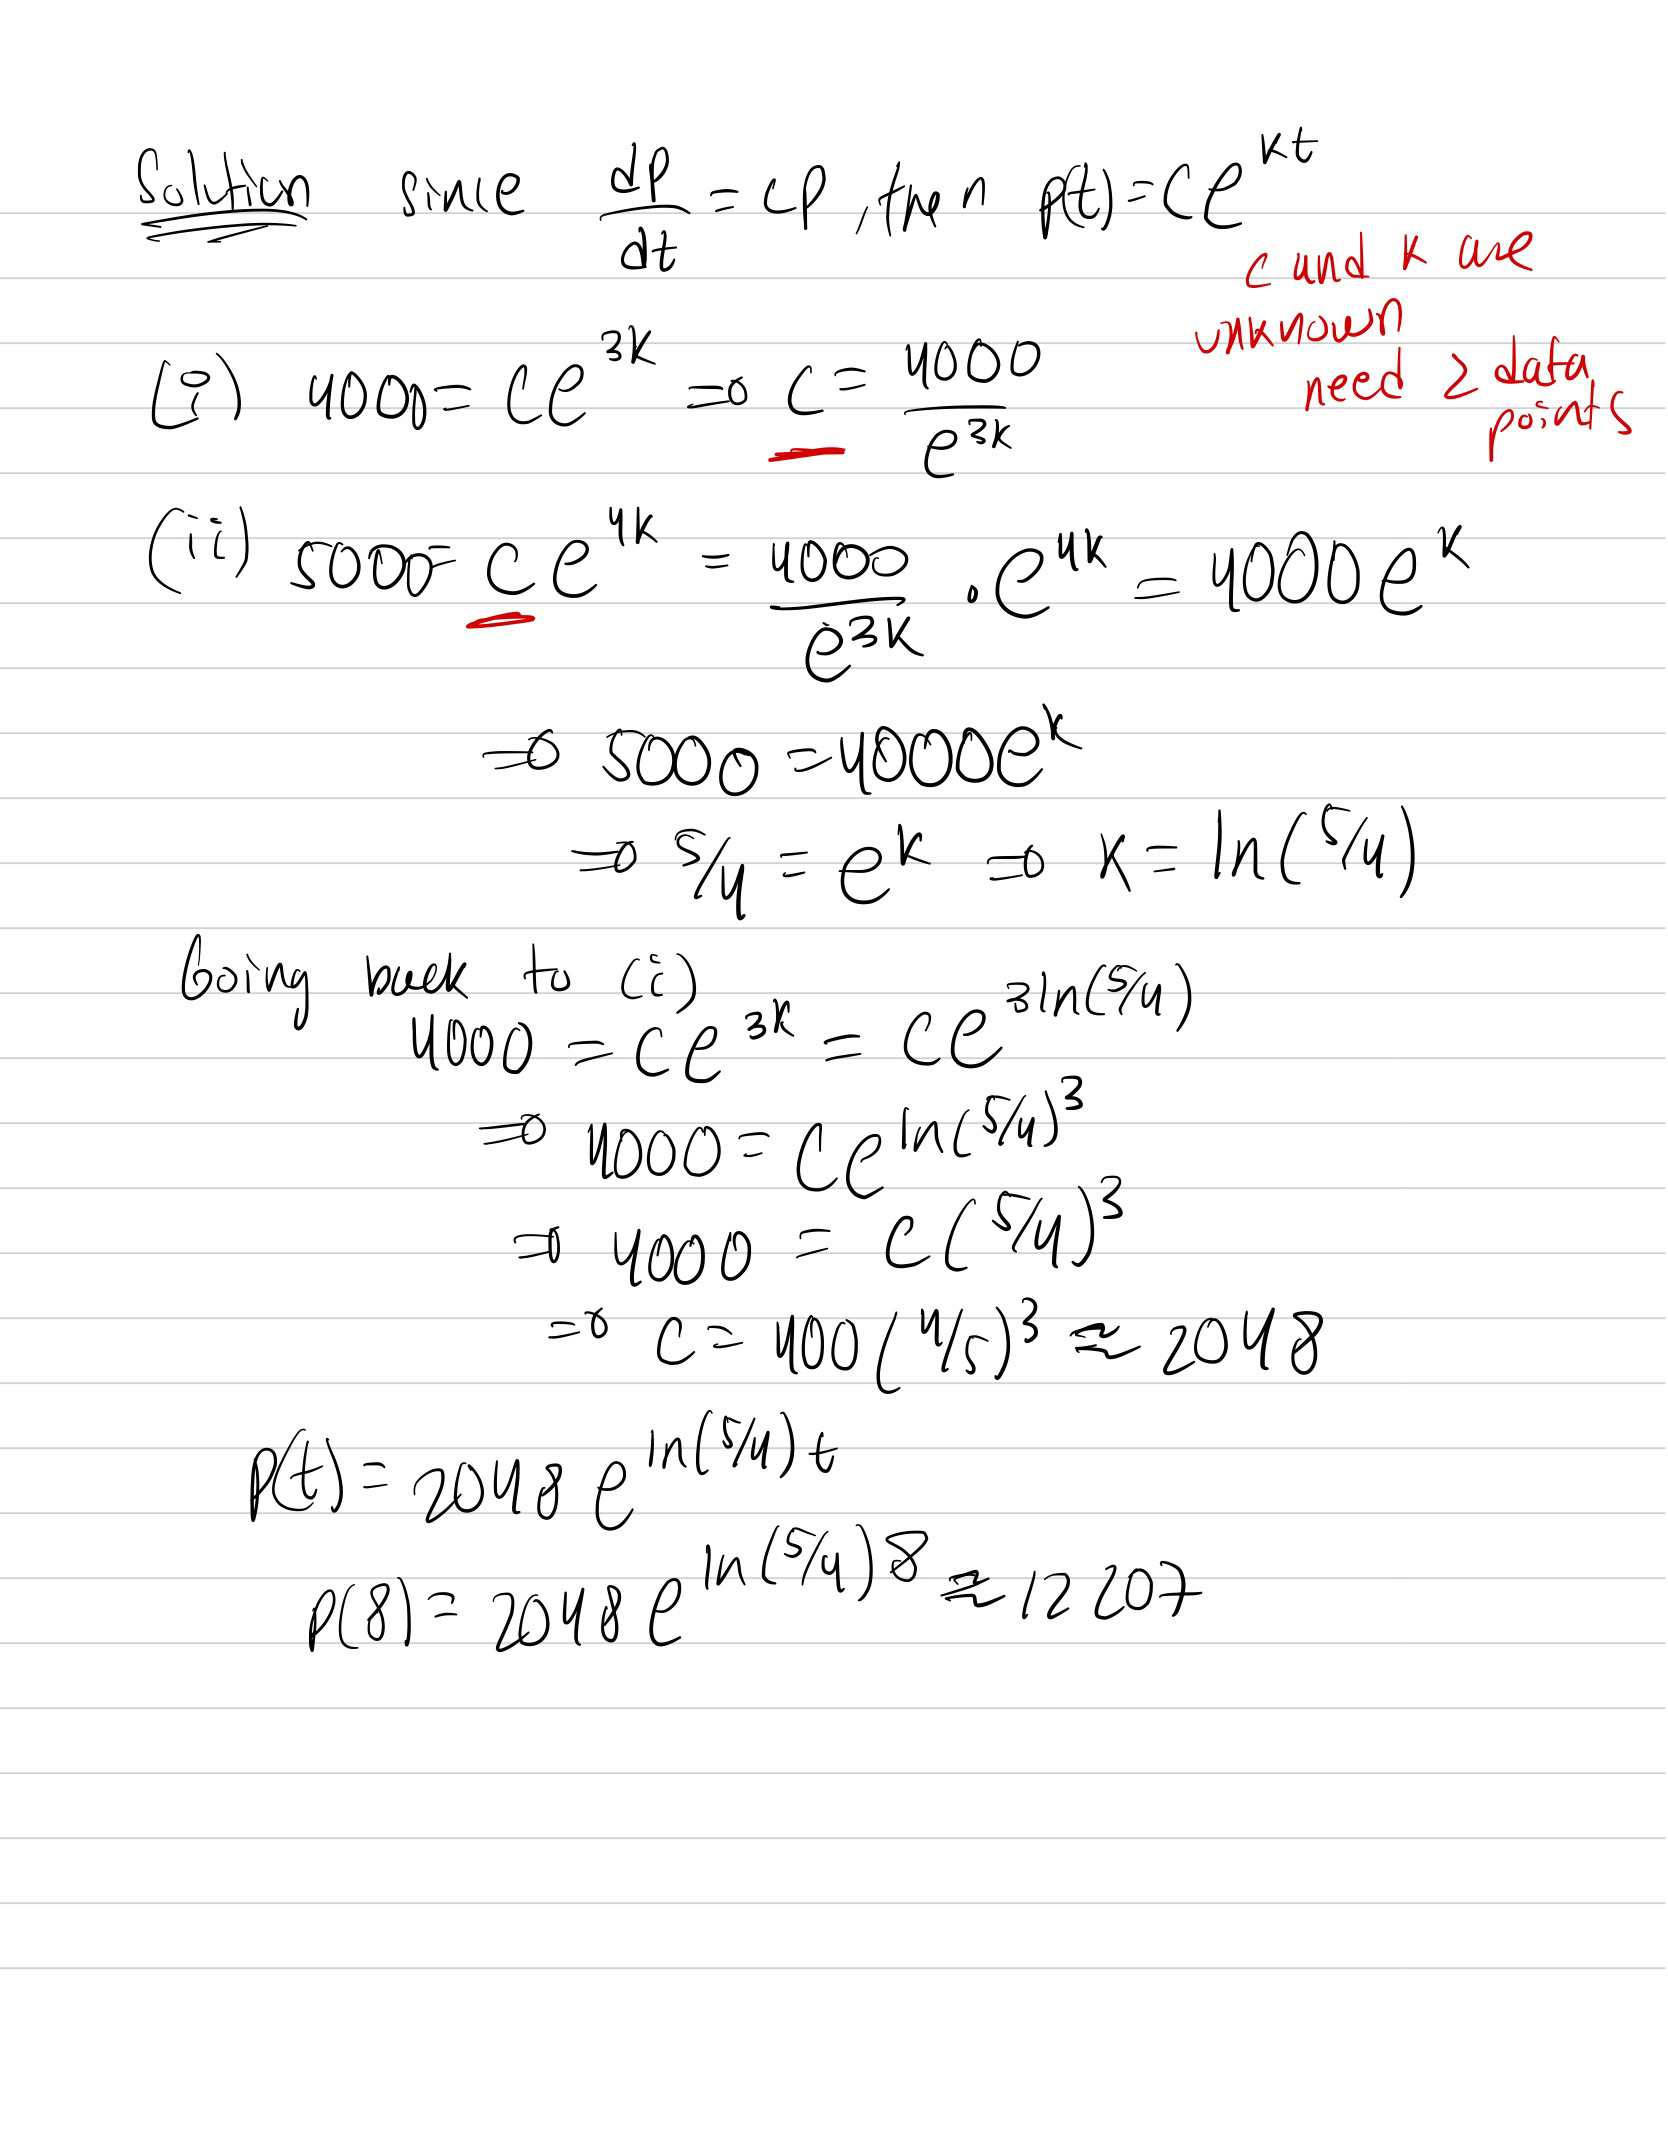 Solution since dP/dt = CP, then P(t) = Ce^{kt}
C and k are
unknown
need 2 data
points
(i) 4000 = Ce^{3k} => C = 4000/e^{3k}
(ii) 5000 = Ce^{4k} = 4000/e^{3k} · e^{4k} = 4000e^{k}
=> 5000 = 4000e^{k}
=> 5/4 = e^{k} => k = ln(5/4)
Going back to (i)
4000 = Ce^{3k} = Ce^{3ln(5/4)}
=> 4000 = Ce^{ln(5/4)^3}
=> 4000 = C(5/4)^3
=> C = 400(4/5)^3 ≈ 2048
P(t) = 2048 e^{ln(5/4)t}
P(8) = 2048 e^{ln(5/4)8} ≈ 12207